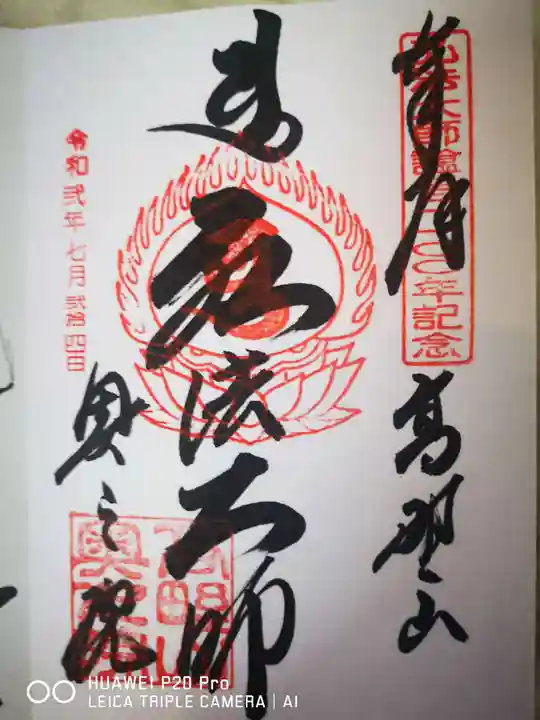 奉拝
弘法大師諡号一一〇〇年記念
高野山
弘法大師
奥之院
令和弐年七月弐拾四日
HUAWEI P20 Pro
LEICA TRIPLE CAMERA | AI